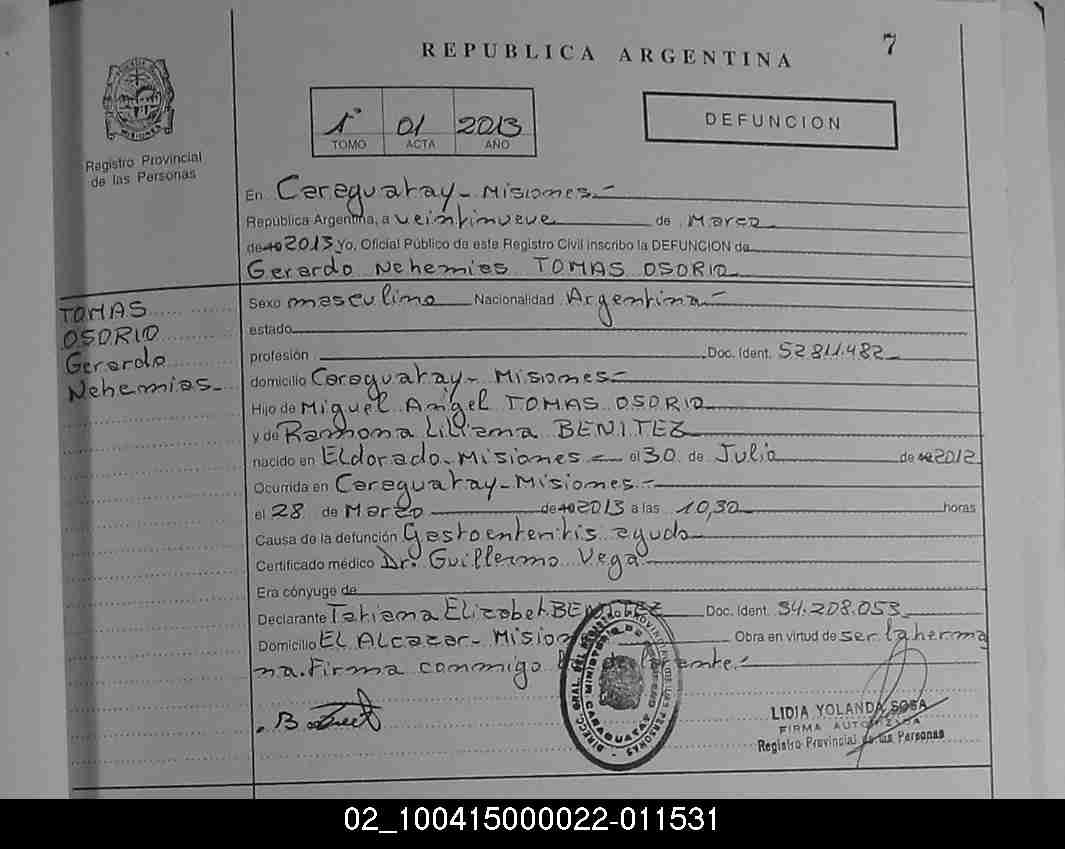 7
REPUBLICA ARGENTINA
1° 01 2013
TOMO ACTA AÑO
DEFUNCION
Registro Provincial
de las Personas
En Careguatay - Misiones.-
República Argentina, a veintinueve de Marzo
de 2013 Yo, Oficial Público de este Registro Civil inscribo la DEFUNCION de
Gerardo Nehemias TOMAS OSORIO
TOMAS
OSORIO
Gerardo
Nehemias
Sexo masculino Nacionalidad Argentina
estado
profesión Doc. Ident. 52811.482
domicilio Caraguatay - Misiones
Hijo de Miguel Angel TOMAS OSORIO
y de Ramona Liliana BENITEZ
nacido en Eldorado - Misiones - el 30 de Julio de 2012
Ocurrida en Caraguatay - Misiones.-
el 28 de Marzo de 2013 a las 10,30 horas
Causa de la defunción Gastroenteritis aguda
Certificado médico Dr. Guillermo Vega
Era cónyuge de
Declarante Tatiana Elizabet BENITEZ Doc. Ident. 34.208.053
Domicilio El Alcazar - Misiones Obra en virtud de ser la herma
na. Firma conmigo
LIDIA YOLANDA SOSA
FIRMA AUTORIZADA
Registro Provincial de las Personas
DIRECC. GRAL. DEL REGISTRO PROVINCIAL DE LAS PERSONAS
MINISTERIO DE GOBIERNO
CARAGUATAY
02_100415000022-011531